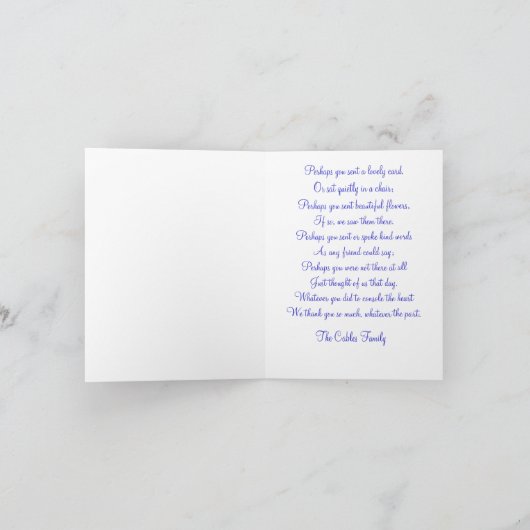 Perhaps you sent a lovely card,
Or sat quietly in a chair;
Perhaps you sent beautiful flowers,
If so, we saw them there.
Perhaps you sent or spoke kind words
As any friend could say;
Perhaps you were not there at all
Just thought of us that day.
Whatever you did to console the heart
We thank you so much, whatever the part.
The Cables Family